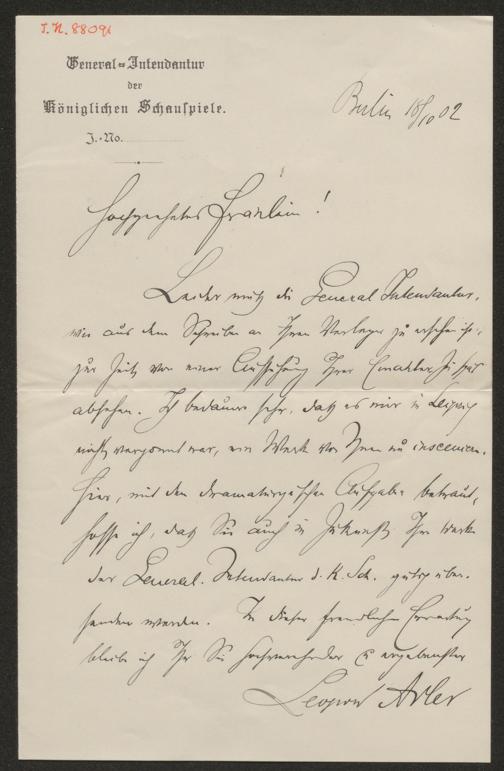 J.N. 88091
General-Intendantur
der
Königlichen Schauspiele.
J.-No.
Berlin 18/10 02
Hochgeehrtes Fräulein!
Leider muß die General Intendantur,
wie aus dem Schreiben an Ihren Verleger zu ersehen ist,
zur Zeit von einer Aufführung Ihres Einakters
absehen. Ich bedaure sehr, daß es mir in Leipzig
nicht vergönnt war, ein Werk von Ihnen zu inscenieren.
Hier, mit den dramaturgischen Aufgaben betraut,
hoffe ich, daß Sie auch in Zukunft Ihre Werke
der General-Intendantur d. K. Sch. gütigst über-
senden werden. In dieser freundlichen Erwartung
bleibe ich Ihr Sie hochverehrender & ergebenster
Leopold Adler